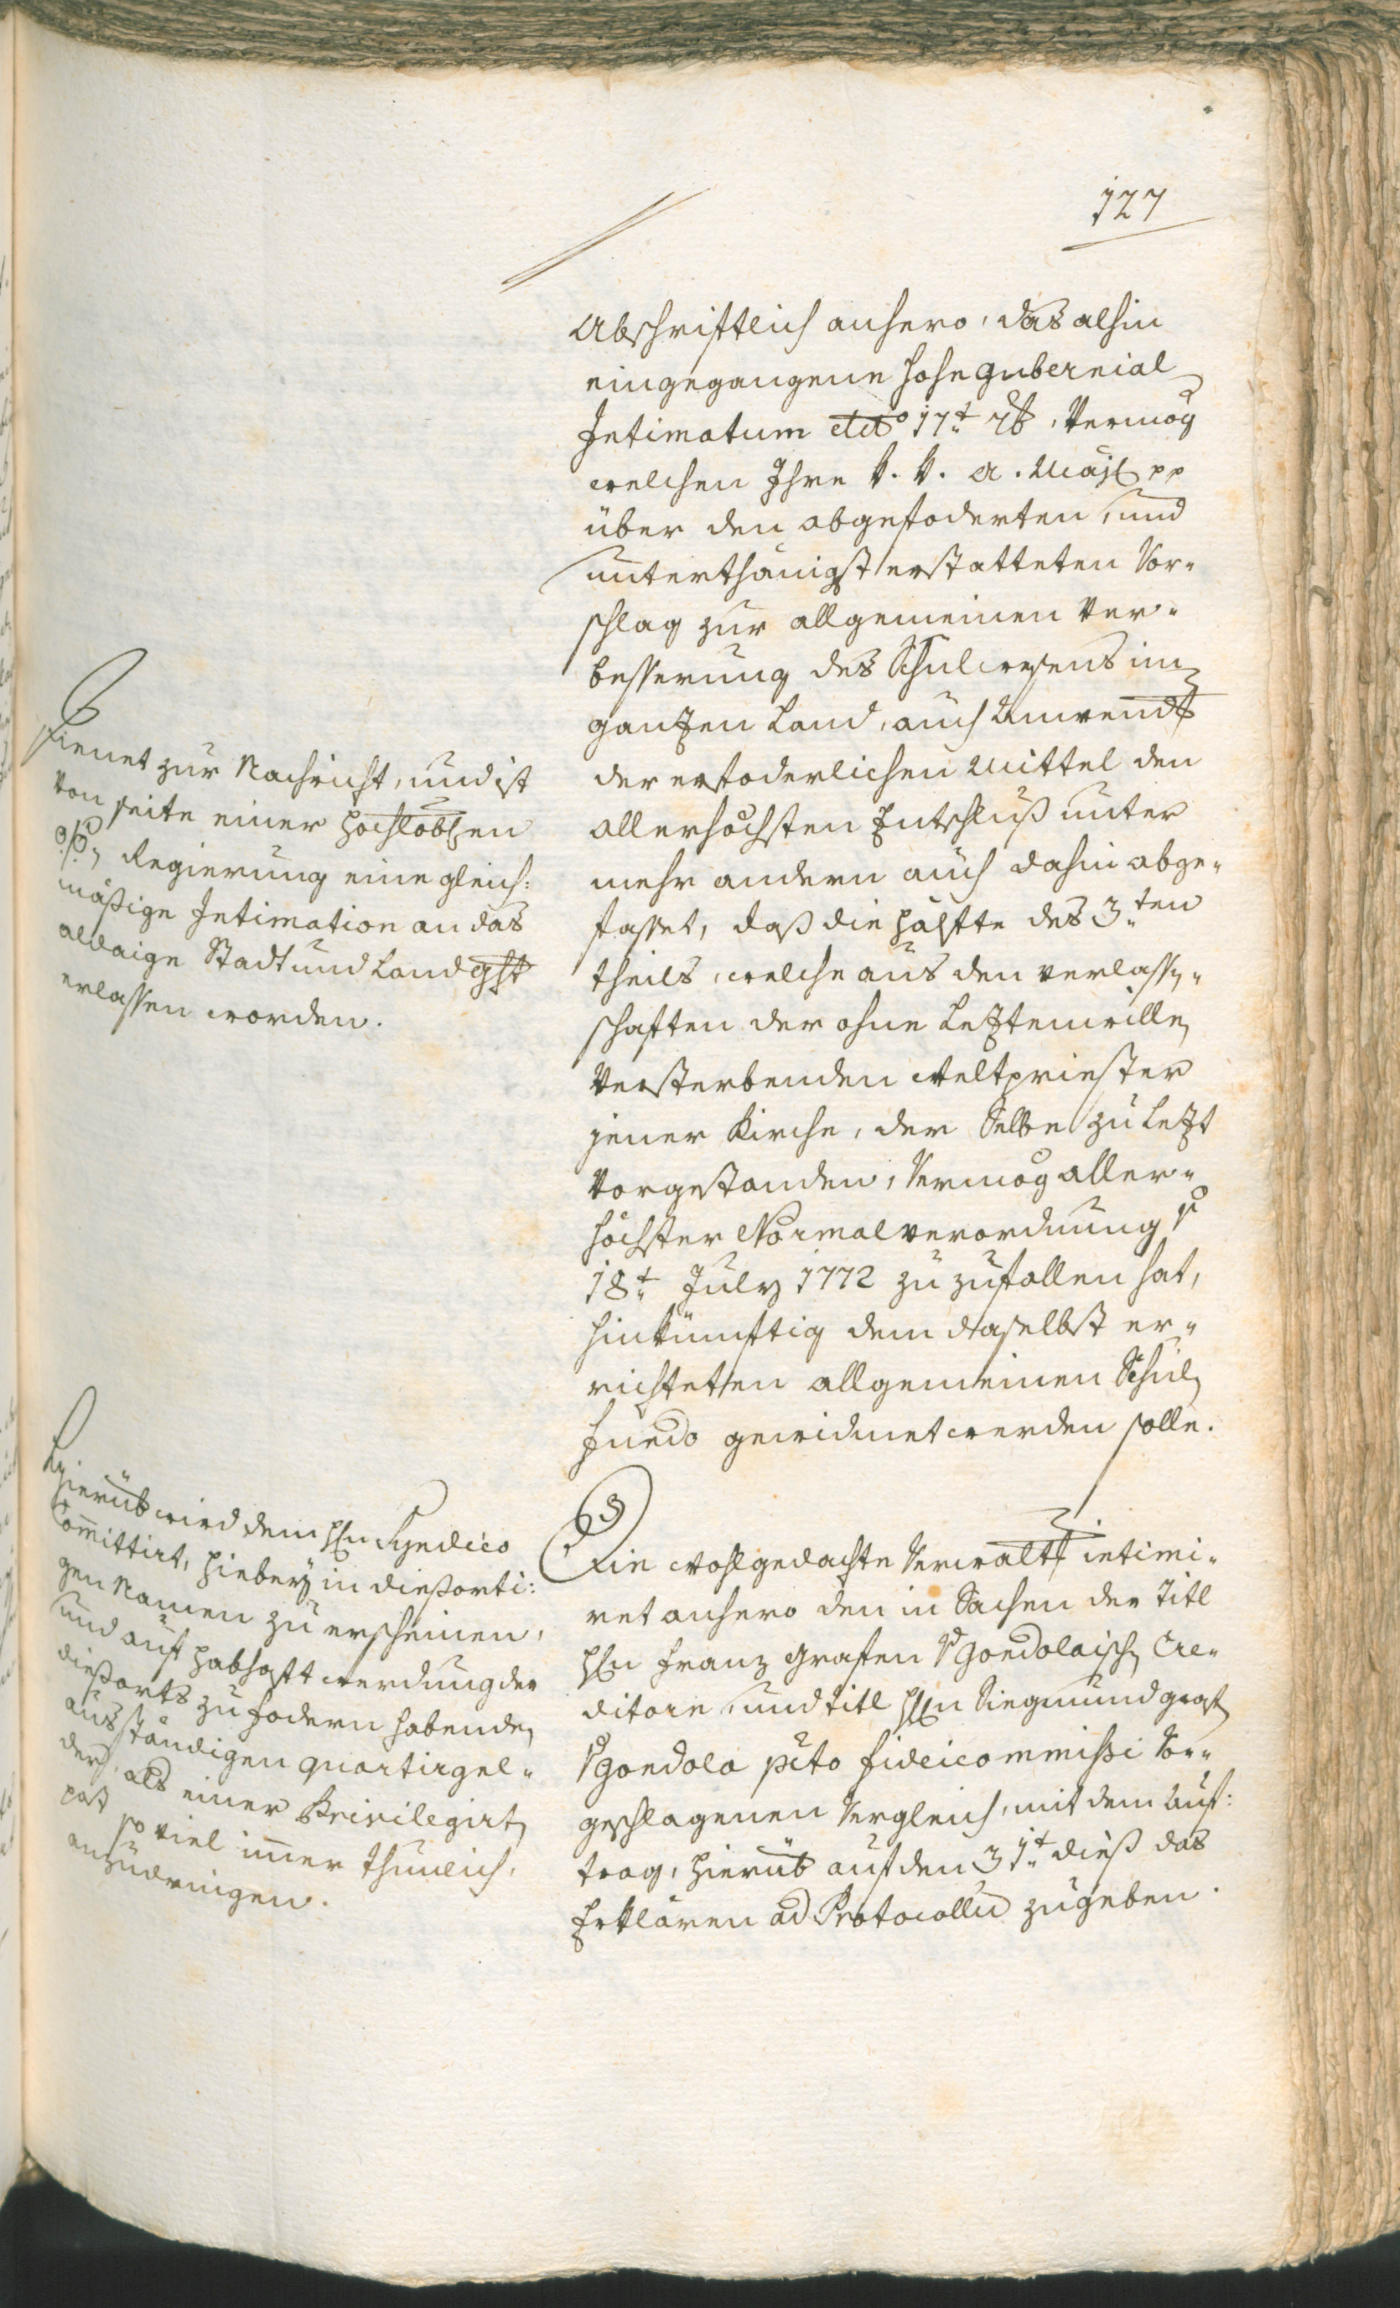 127
Abschriftlich anhero, das alhin
eingegangene hohe Gubernial
Intimatum ddto 17t 7b, Vermög
welchen Ihre k. k. a. Majl pp
über den abgefoderten, und
unterthänigst erstatteten Vor-
schlag zur allgemeinen Ver-
besserung des Schulwesens im
gantzen Land, auch Anwendt
der erfoderlichen Mittel den
allerhöchsten Entschluß unter
mehr andern auch dahin abge-
fasset, daß die Hälfte des 3ten
theils, welche aus den verlass-
schaften der ohne Letztenwille
Versterbenden Weltpriester
jener Kirche, der Selbe zu Letzt
Vorgestanden, Vermög aller-
höchster Normalverordnung
18t July 1772 zu zufallen hat,
hinkünftig dem daselbst er-
richteten allgemeinen Schul
fundo gewidmet werden solle.
Dienet zur Nachricht, und ist
von seite einer hochloben
Regierung eine gleich:
mäßige Intimation an das
aldaige Stadt und Land ght
erlassen worden.
3
Eine Wohlgedachte Verwaltt intimi-
ret anhero den in Sachen der Titl
Hln Franz Grafen v Gondolaisch Cre-
ditorn, und Titl Hln Siegmund Graf
v Gondola pcto fideicommissi Vor-
geschlagenen Vergleich, mit dem Auf:
trag, hierüb auf den 31t dieß das
Erklären ad Protocollu zugeben.
Hierüb wird dem Hln Syndico
Committirt, hiebey in dießorti:
gen Namen zu erscheinen,
und auf habhaft werdung der
dießorts zu fodern habende
ausständigen quartirgel-
der, als einer Privilegirt
post so viel imer thunlich,
anzudringen.